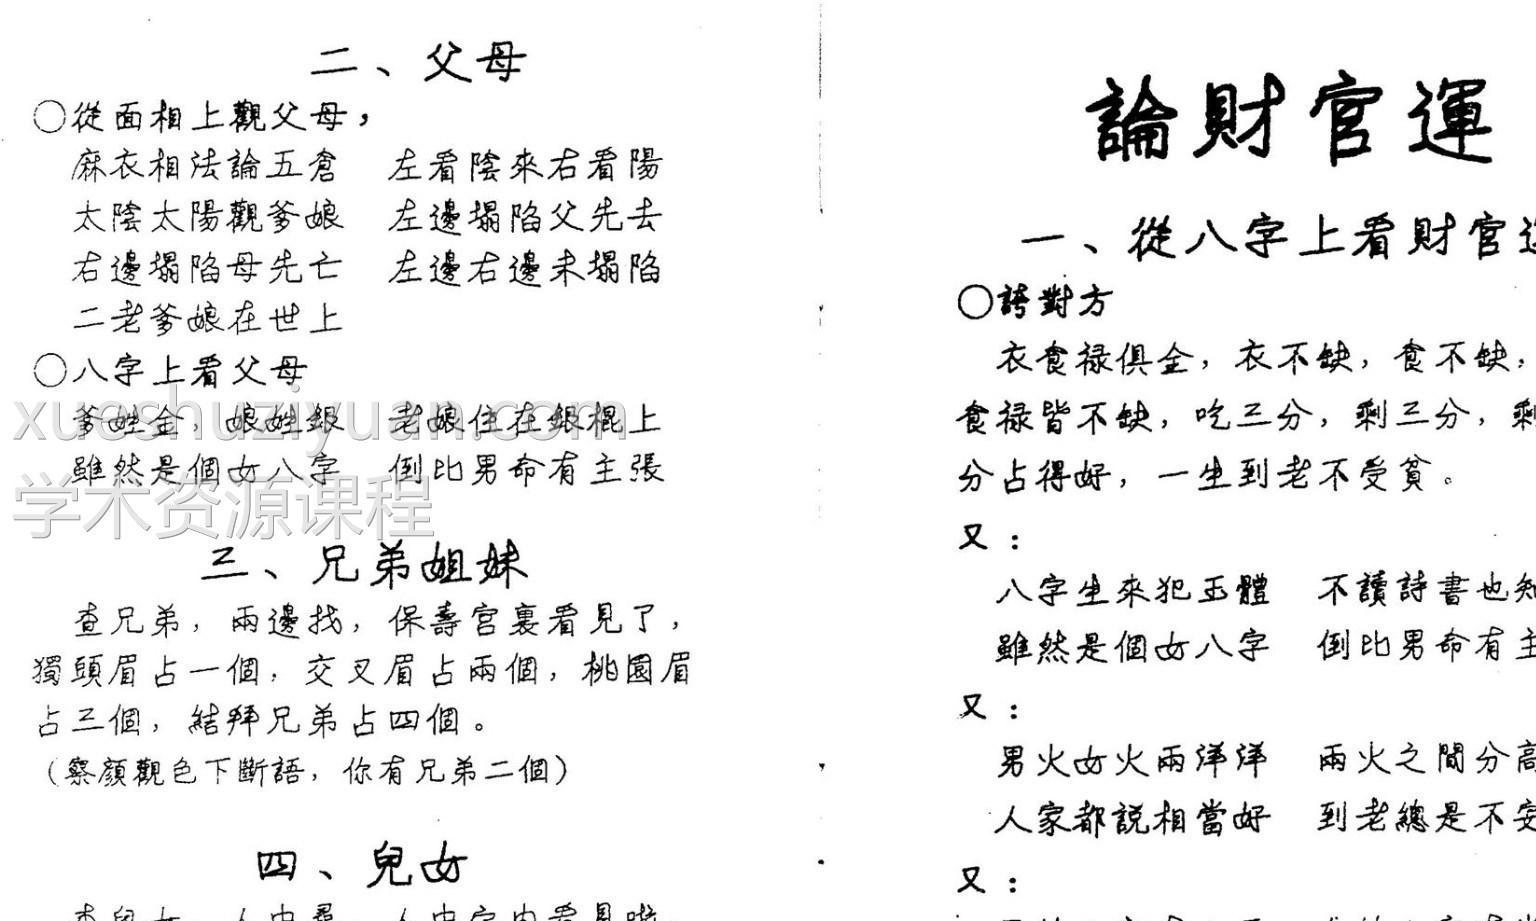 二、父母
○從面相上觀父母，
麻衣相法論五倉　左看陰來右看陽
太陰太陽觀爹娘　左邊塌陷父先去
右邊塌陷母先亡　左邊右邊未塌陷
二老爹娘在世上
○八字上看父母
爹姓金，娘姓銀　老娘住在銀棍上
雖然是個女八字　倒比男命有主張
xueshuziyuan.com
学术资源课程
三、兄弟姐妹
查兄弟，兩邊找，保壽宮裏看見了，
獨頭眉占一個，交叉眉占兩個，桃園眉
占三個，結拜兄弟占四個。
（察顏觀色下斷語，你有兄弟二個）
四、兒女
論財官運
一、從八字上看財官運
○誇對方
衣食祿俱全，衣不缺，食不缺，
食祿皆不缺，吃三分，剩三分，剩
分占得好，一生到老不受貧。
又：
八字生來犯玉體　不讀詩書也知
雖然是個女八字　倒比男命有主
又：
男火女火兩洋洋　兩火之間分高
人家都說相當好　到老總是不安
又：